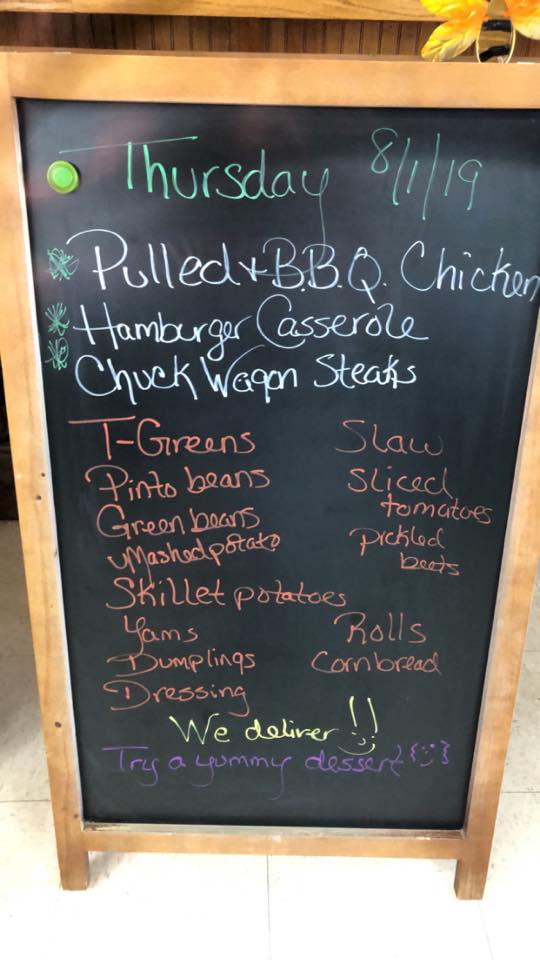 Thursday 8/1/19
Pulled + B.B.Q. Chicken
Hamburger Casserole
Chuck Wagon Steaks
T-Greens
Pinto beans
Green beans
Mashed potato
Skillet potatoes
Yams
Dumplings
Dressing
Slaw
Sliced
tomatoes
pickled
beets
Rolls
Cornbread
We deliver!!
Try a yummy dessert